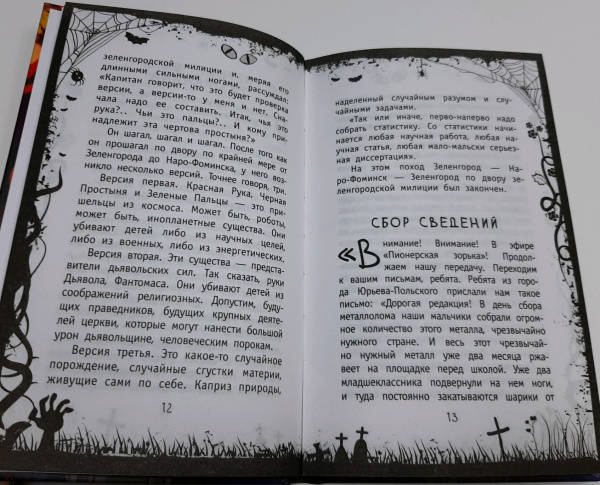 зеленгородской милиции и, меряя его
длинными сильными ногами, рассуждал:
«Капитан говорит, что это будет проверка
версии, а версии-то у меня и нет. Сна-
чала надо ее составить. Итак, чья это
рука?.. Чьи это пальцы?.. И кому при-
надлежит эта чертова простыня?»
Он шагал, шагал и шагал. После того как
он прошагал по двору по крайней мере от
Зеленгорода до Наро-Фоминска, у него воз-
никло несколько версий. Точнее говоря, три.
Версия первая. Красная Рука, Черная
Простыня и Зеленые Пальцы — это при-
шельцы из космоса. Может быть, роботы,
может быть, инопланетные существа. Они
убивают детей либо из научных целей,
либо из военных, либо из энергетических.
Версия вторая. Эти существа — предста-
вители дьявольских сил. Так сказать, руки
Дьявола, Фантомаса. Они убивают детей из
соображений религиозных. Допустим, буду-
щих праведников, будущих крупных деяте-
лей церкви, которые могут нанести большой
урон дьявольщине, человеческим порокам.
Версия третья. Это какое-то случайное
порождение, случайные сгустки материи,
живущие сами по себе. Каприз природы,
12
наделенный случайным разумом и слу-
чайными задачами.
«Так или иначе, перво-наперво надо
собрать статистику. Со статистики начи-
нается любая научная работа, любая науч-
ная статья, любая мало-мальски серьез-
ная диссертация».
На этом поход Зеленгород — На-
ро-Фоминск — Зеленгород по двору зе-
ленгородской милиции был закончен.
СБОР СВЕДЕНИЙ
«Внимание! Внимание! В эфире
«Пионерская зорька»! Продол-
жаем нашу передачу. Переходим
к вашим письмам, ребята. Ребята из горо-
да Юрьева-Польского прислали нам такое
письмо: «Дорогая редакция! В день сбора
металлолома наши мальчики собрали огром-
ное количество этого металла, чрезвычайно
нужного стране. И весь этот чрезвычай-
но нужный металл уже два месяца ржа-
веет на площадке перед школой. Уже два
младшеклассника подвернули на нем ноги,
и туда постоянно закатываются шарики от
13